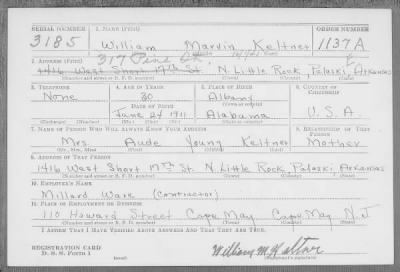 SERIAL NUMBER 1. NAME (Print) ORDER NUMBER
3185 William Marvin Keltner 1137A
2. ADDRESS (Print) 317 Pine St.
1416 West Short 17th St. N Little Rock, Pulaski, Arkansas
(Number and street or R. F. D. number) (Town) (County) (State)
3. TELEPHONE 4. AGE IN YEARS 5. PLACE OF BIRTH 6. COUNTRY OF CITIZENSHIP
None 30 Albany
DATE OF BIRTH (Town or county)
June 24 1911 Alabama U.S.A.
(Exchange) (Number) (Mo.) (Day) (Yr.) (State or country)
7. NAME OF PERSON WHO WILL ALWAYS KNOW YOUR ADDRESS 8. RELATIONSHIP OF THAT PERSON
Mrs. Aude Young Keltner Mother
(Mr., Mrs., Miss) (First) (Middle) (Last)
9. ADDRESS OF THAT PERSON
1416 West Short 17th St. N Little Rock, Pulaski, Arkansas
(Number and street or R. F. D. number) (Town) (County) (State)
10. EMPLOYER'S NAME
Millard Ware (Contractor)
11. PLACE OF EMPLOYMENT OR BUSINESS
110 Howard Street Cape May Cape May N.J
(Number and street or R. F. D. number) (Town) (County) (State)
I AFFIRM THAT I HAVE VERIFIED ABOVE ANSWERS AND THAT THEY ARE TRUE.
REGISTRATION CARD
D. S. S. Form 1 William M. Keltner